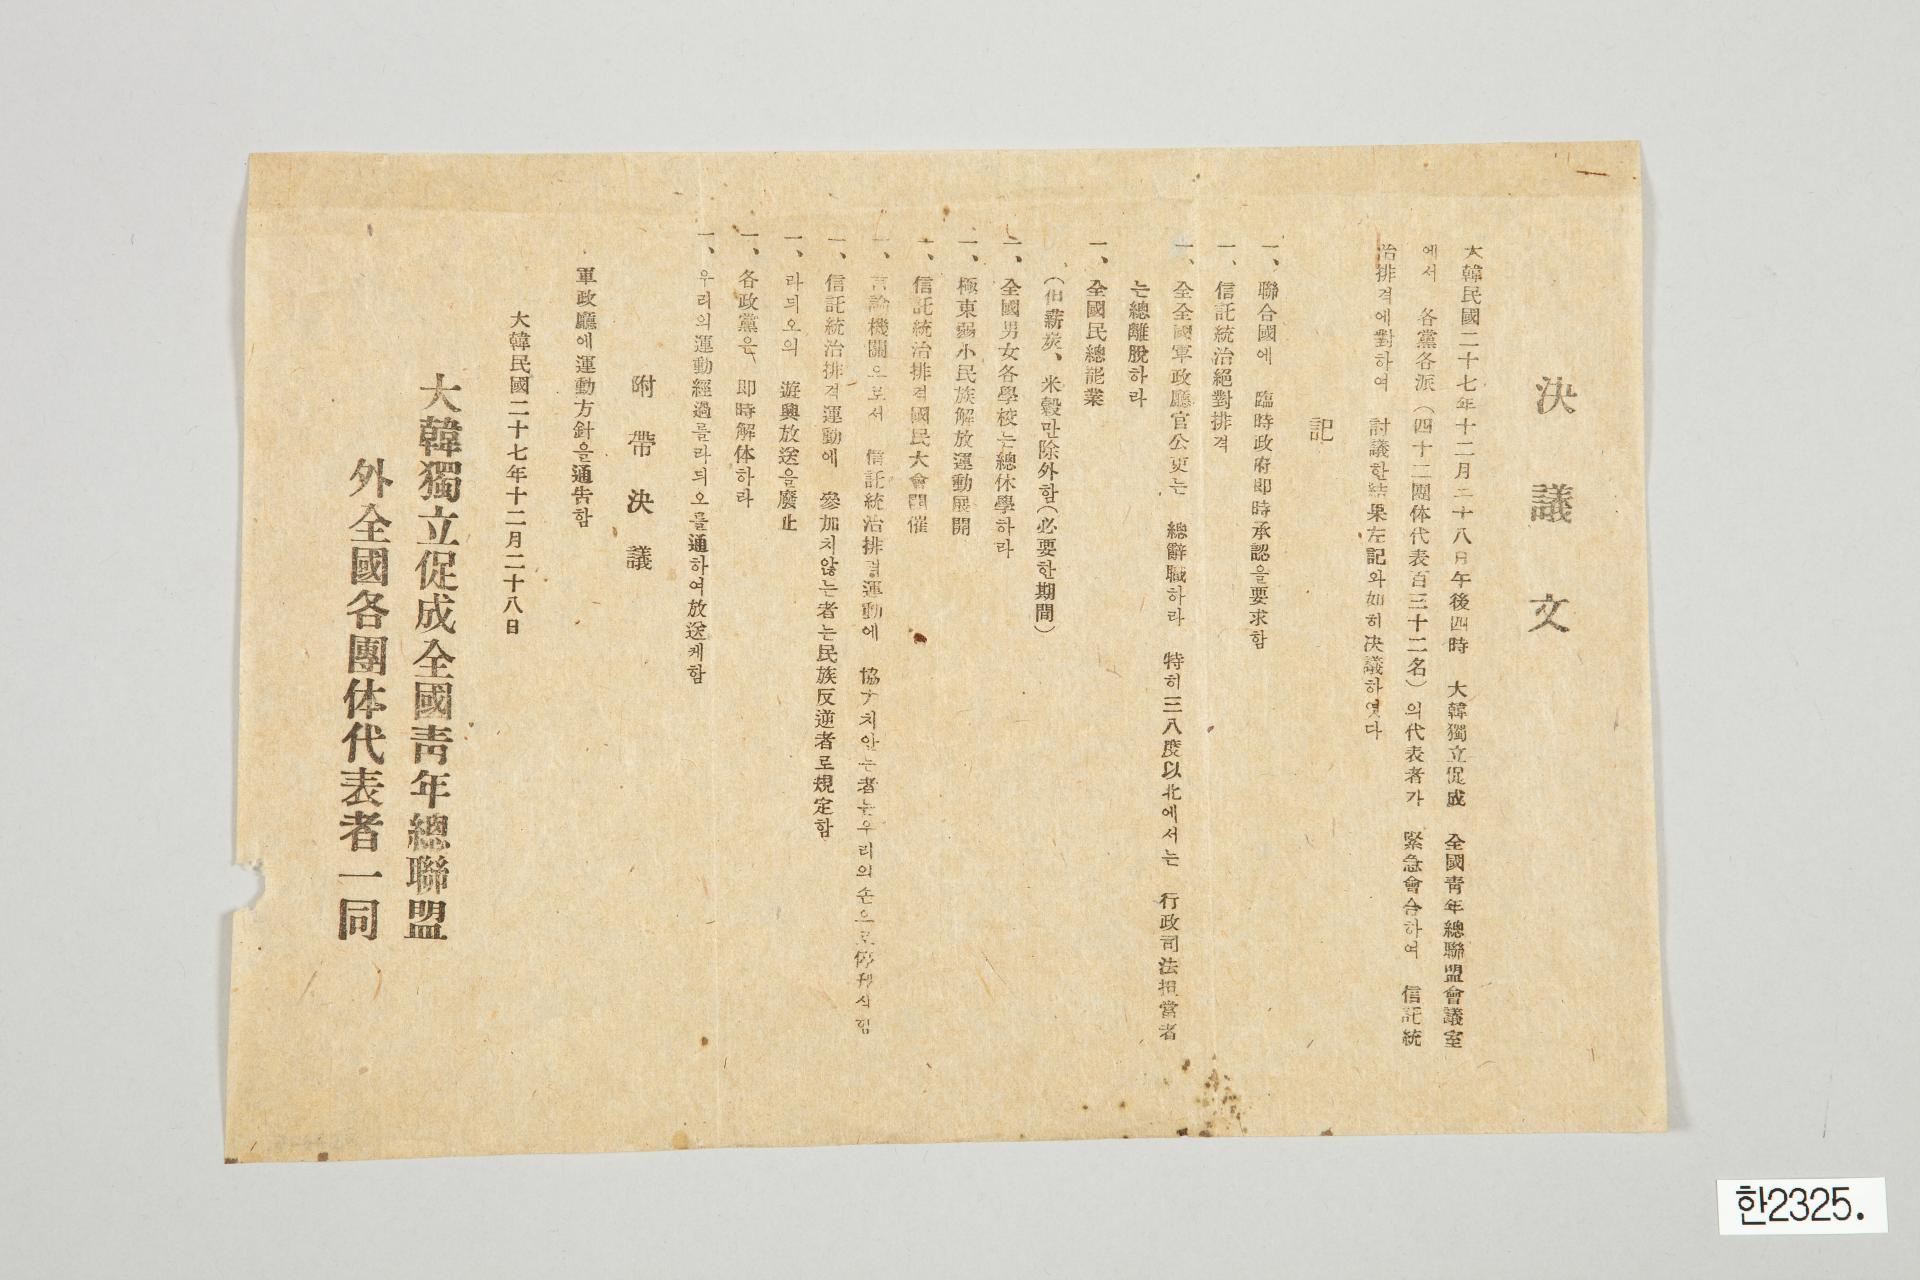 決議文
大韓民國二十七年十二月二十八日午後四時 大韓獨立促成 全國靑年總聯盟會議室
에서 各黨各派(四十二團体代表百三十二名)의代表者가 緊急會合하여 信託統
治排격에對하여 討議한結果左記와如히決議하엿다
記
一、聯合國에 臨時政府即時承認을要求함
一、信託統治絕對排격
一、全全國軍政廳官公吏는 總辭職하라 特히三八度以北에서는 行政司法担當者
는總離脫하라
一、全國民總罷業
(但薪炭、米穀만除外함(必要한期間)
一、全國男女各學校는總休學하라
一、極東弱小民族解放運動展開
一、信託統治排격國民大會開催
一、言論機關으로서 信託統治排격運動에 協力치안는者는우리의손으로停刊시힘
一、信託統治排격運動에 參加치않는者는民族反逆者로規定함
一、라듸오의 遊興放送을廢止
一、各政黨은 即時解体하라
一、우리의運動經過를라듸오를通하여放送케함
附帶決議
軍政廳에運動方針을通告함
大韓民國二十七年十二月二十八日
大韓獨立促成全國靑年總聯盟
外全國各團体代表者一同
한2325.